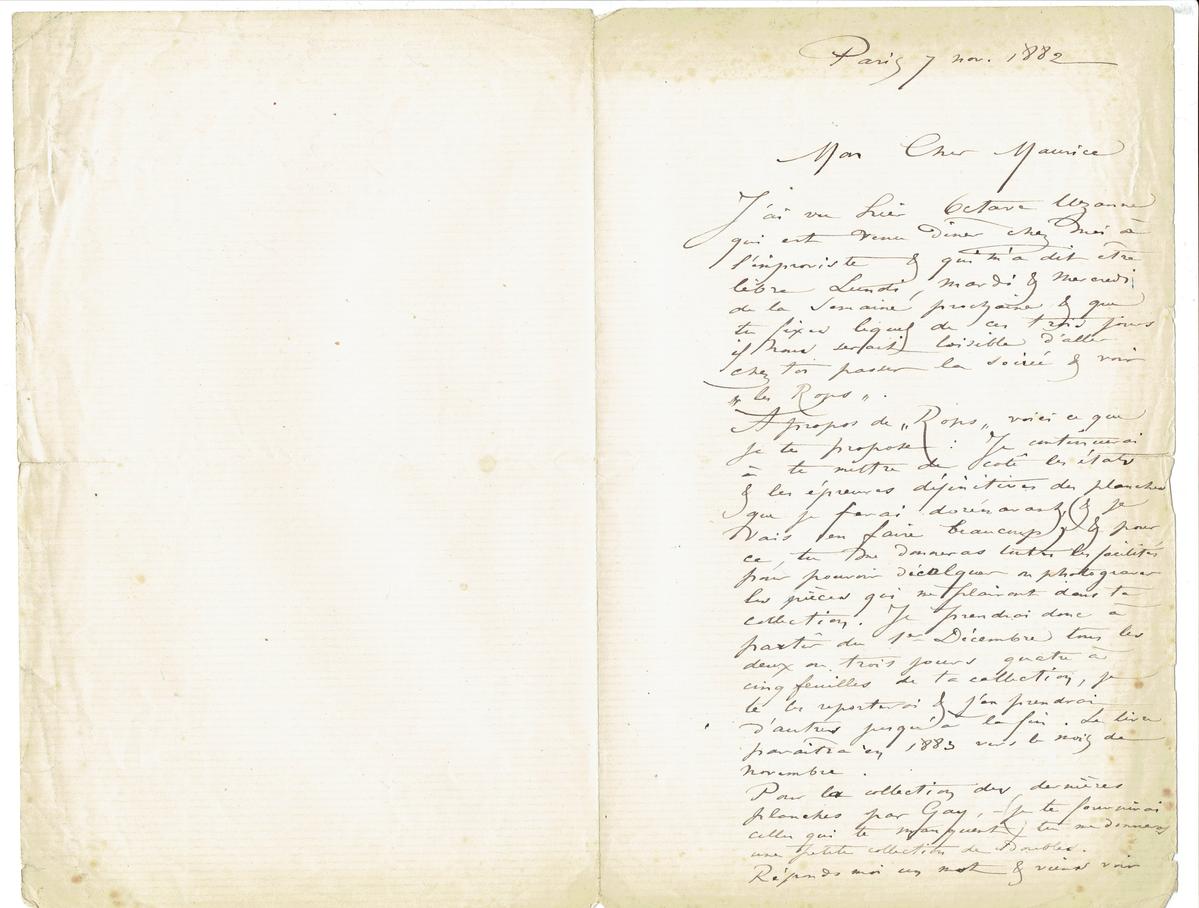 Paris 7 nov. 1882
Mon Cher Maurice
J'ai vu hier Octave Uzanne
qui est venu diner chez moi à
l'improviste & qui m'a dit être
libre Lundi, mardi & mercredi
de la semaine prochaine & que
tu fixes lequel de ces trois jours
il nous serait loisible d'aller
chez toi passer la soirée & voir
„ les Rops „ .
A propos de „ Rops „ voici ce que
je te propose : Je continuerai
à te mettre de coté les états
& les épreuves définitives des planches
que je ferai dorénavant, (& je
vais en faire beaucoup) & pour
ce, tu me donneras toutes les facilités
pour pouvoir décalquer ou photograver
les pièces qui me plairont dans ta
collection. Je prendrai donc à
partir du 1er Décembre tous les
deux ou trois jours quatre à
cinq feuilles de ta collection, je
te les reporterai & j'en prendrai
d'autres jusqu'à la fin. Le livre
paraîtra en 1883 vers le mois de
novembre .
Pour la collection des dernières
planches par Gay, (je te fournirai
celles qui te manquent) tu me donneras
une petite collection de Doubles.
Réponds moi un mot & viens voir